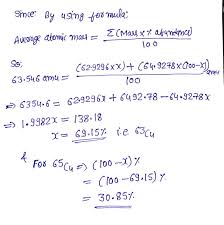 Since: By using formula:
Average atomic mass = Σ(Mass x % abundance) / 100
So;
63.546 amu = (62.9296 x X) + (64.9278 x (100-X)) / 100 amu
⇒ 6354.6 = 62.9296x + 6492.78 - 64.9278x
⇒ 1.9982x = 138.18
x = 69.15% i.e ⁶³Cu
& For ⁶⁵Cu ⇒ (100-x)%
= (100-69.15)%
= 30.85%